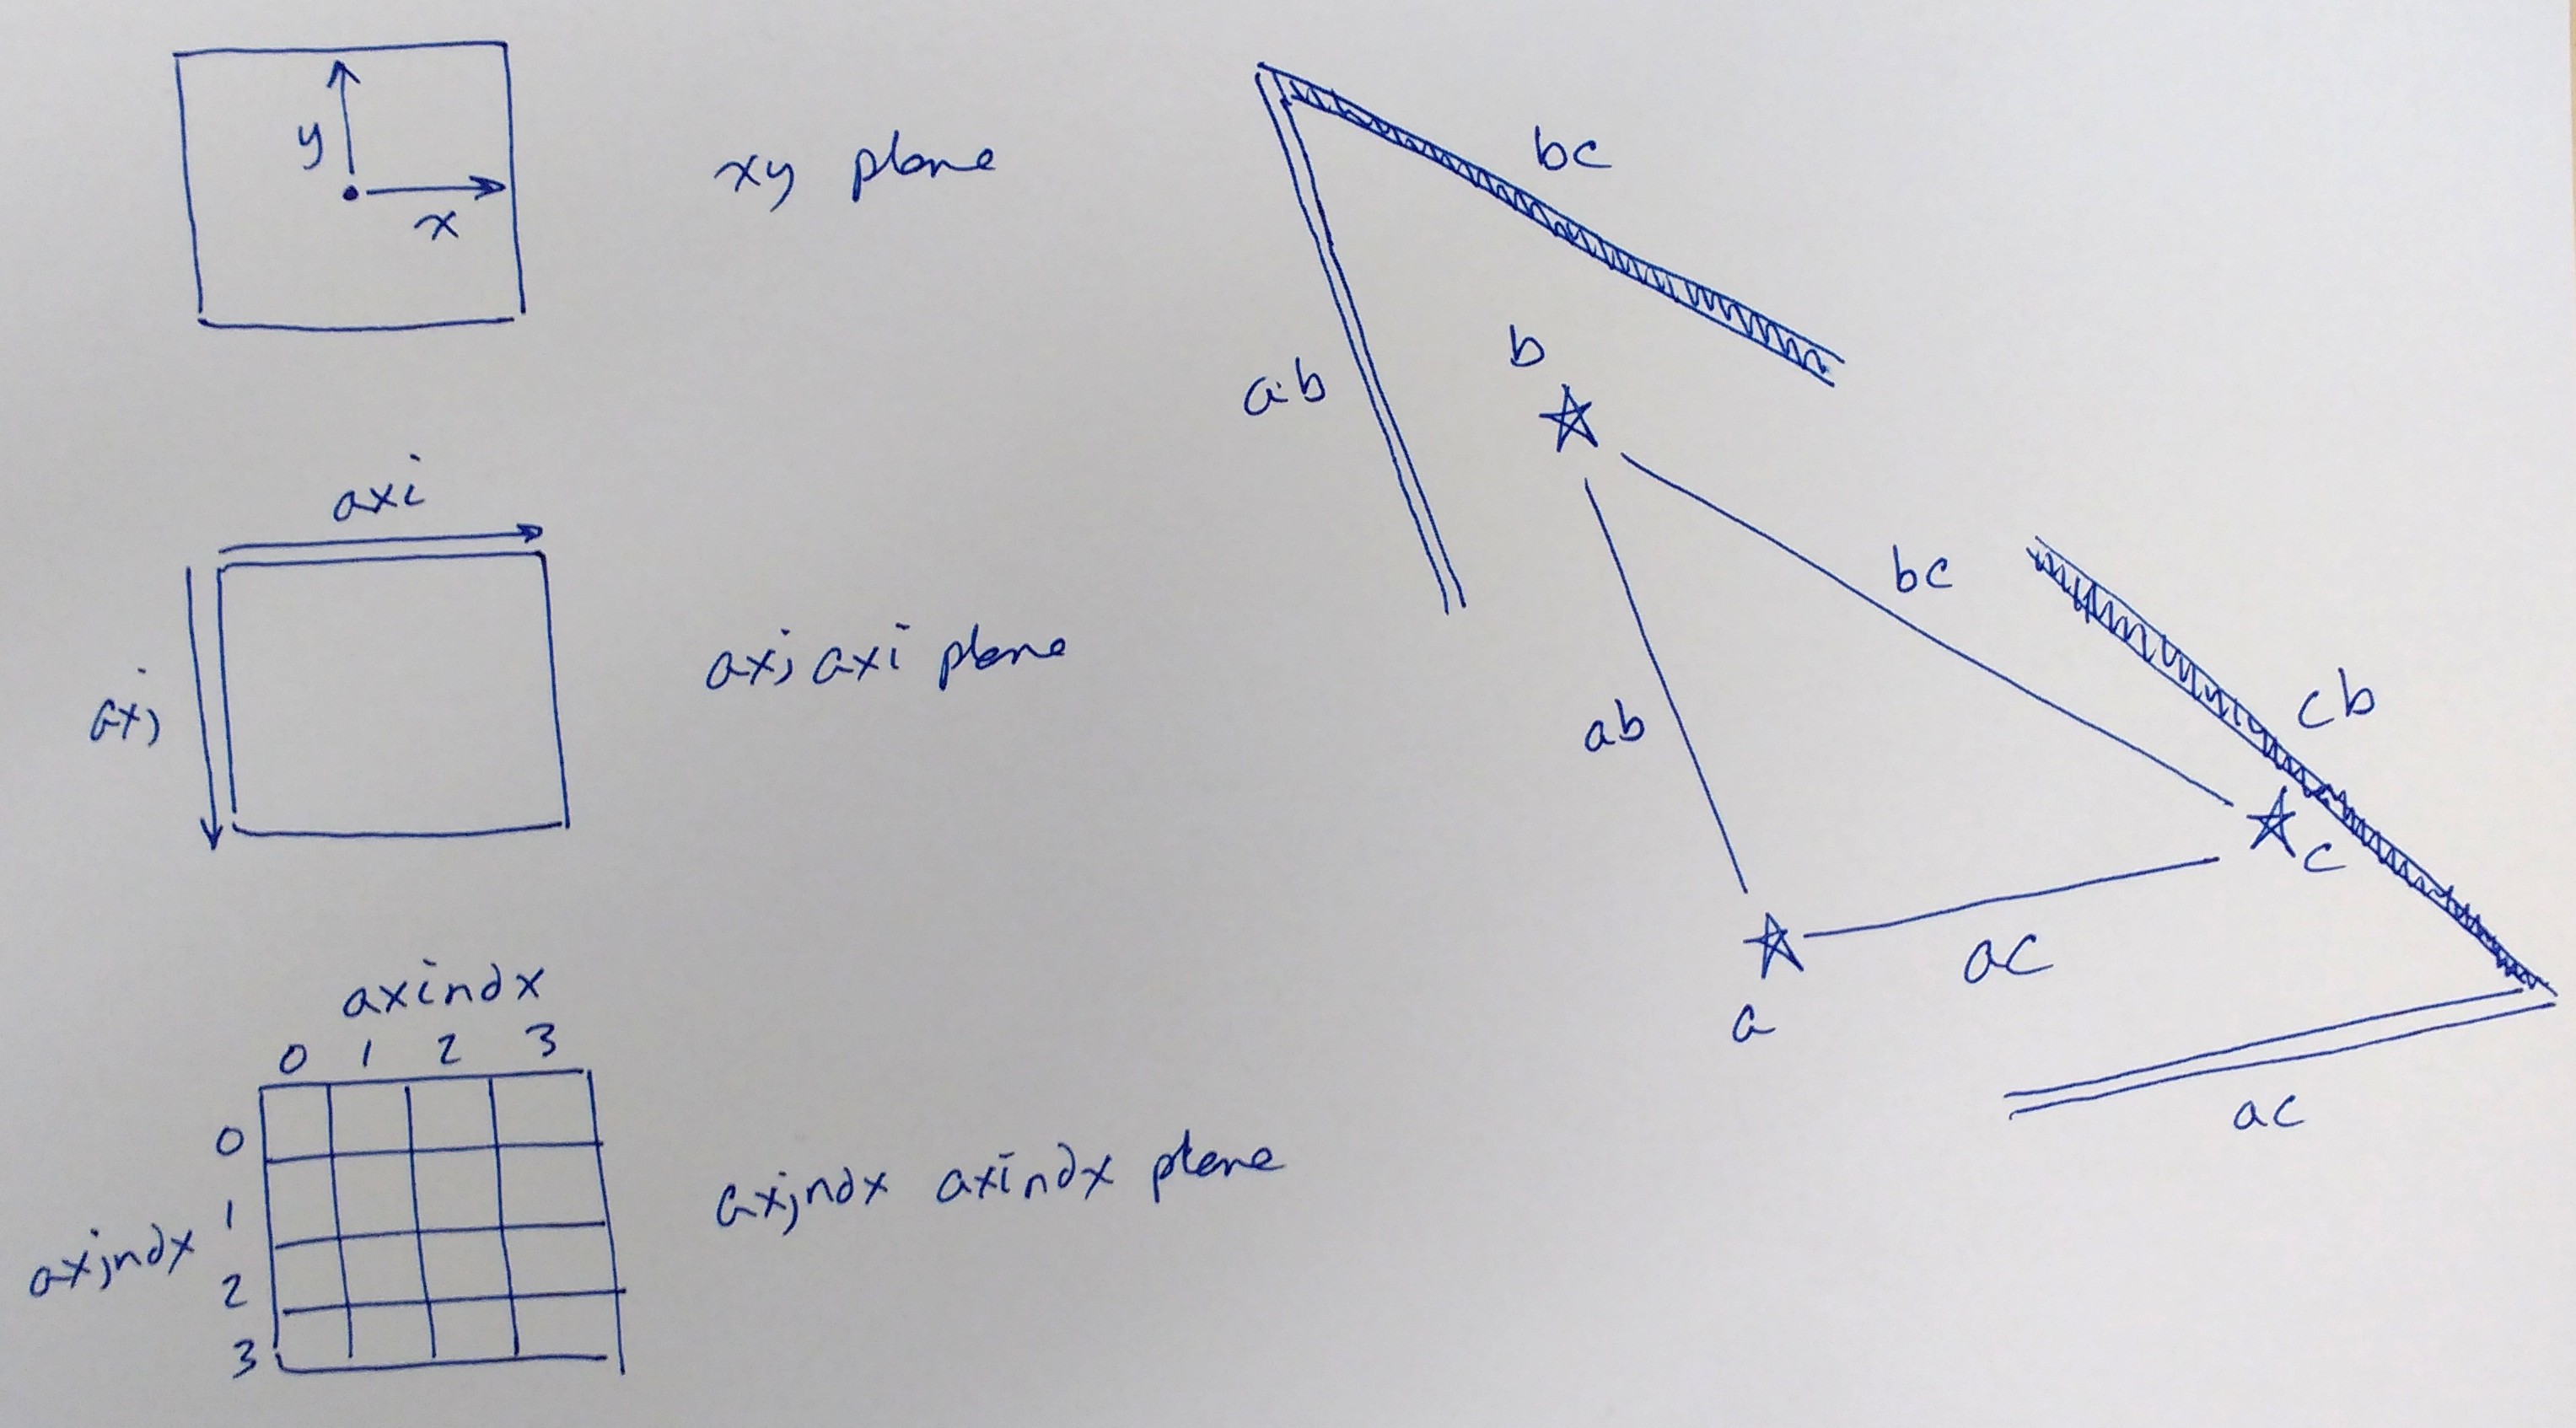 y
x
xy plane
axi
axj
axj axi plane
axindx
0 1 2 3
0
1
axjndx
2
3
axjndx axindx plane
bc
ab
b
bc
ab
cb
c
ac
a
ac